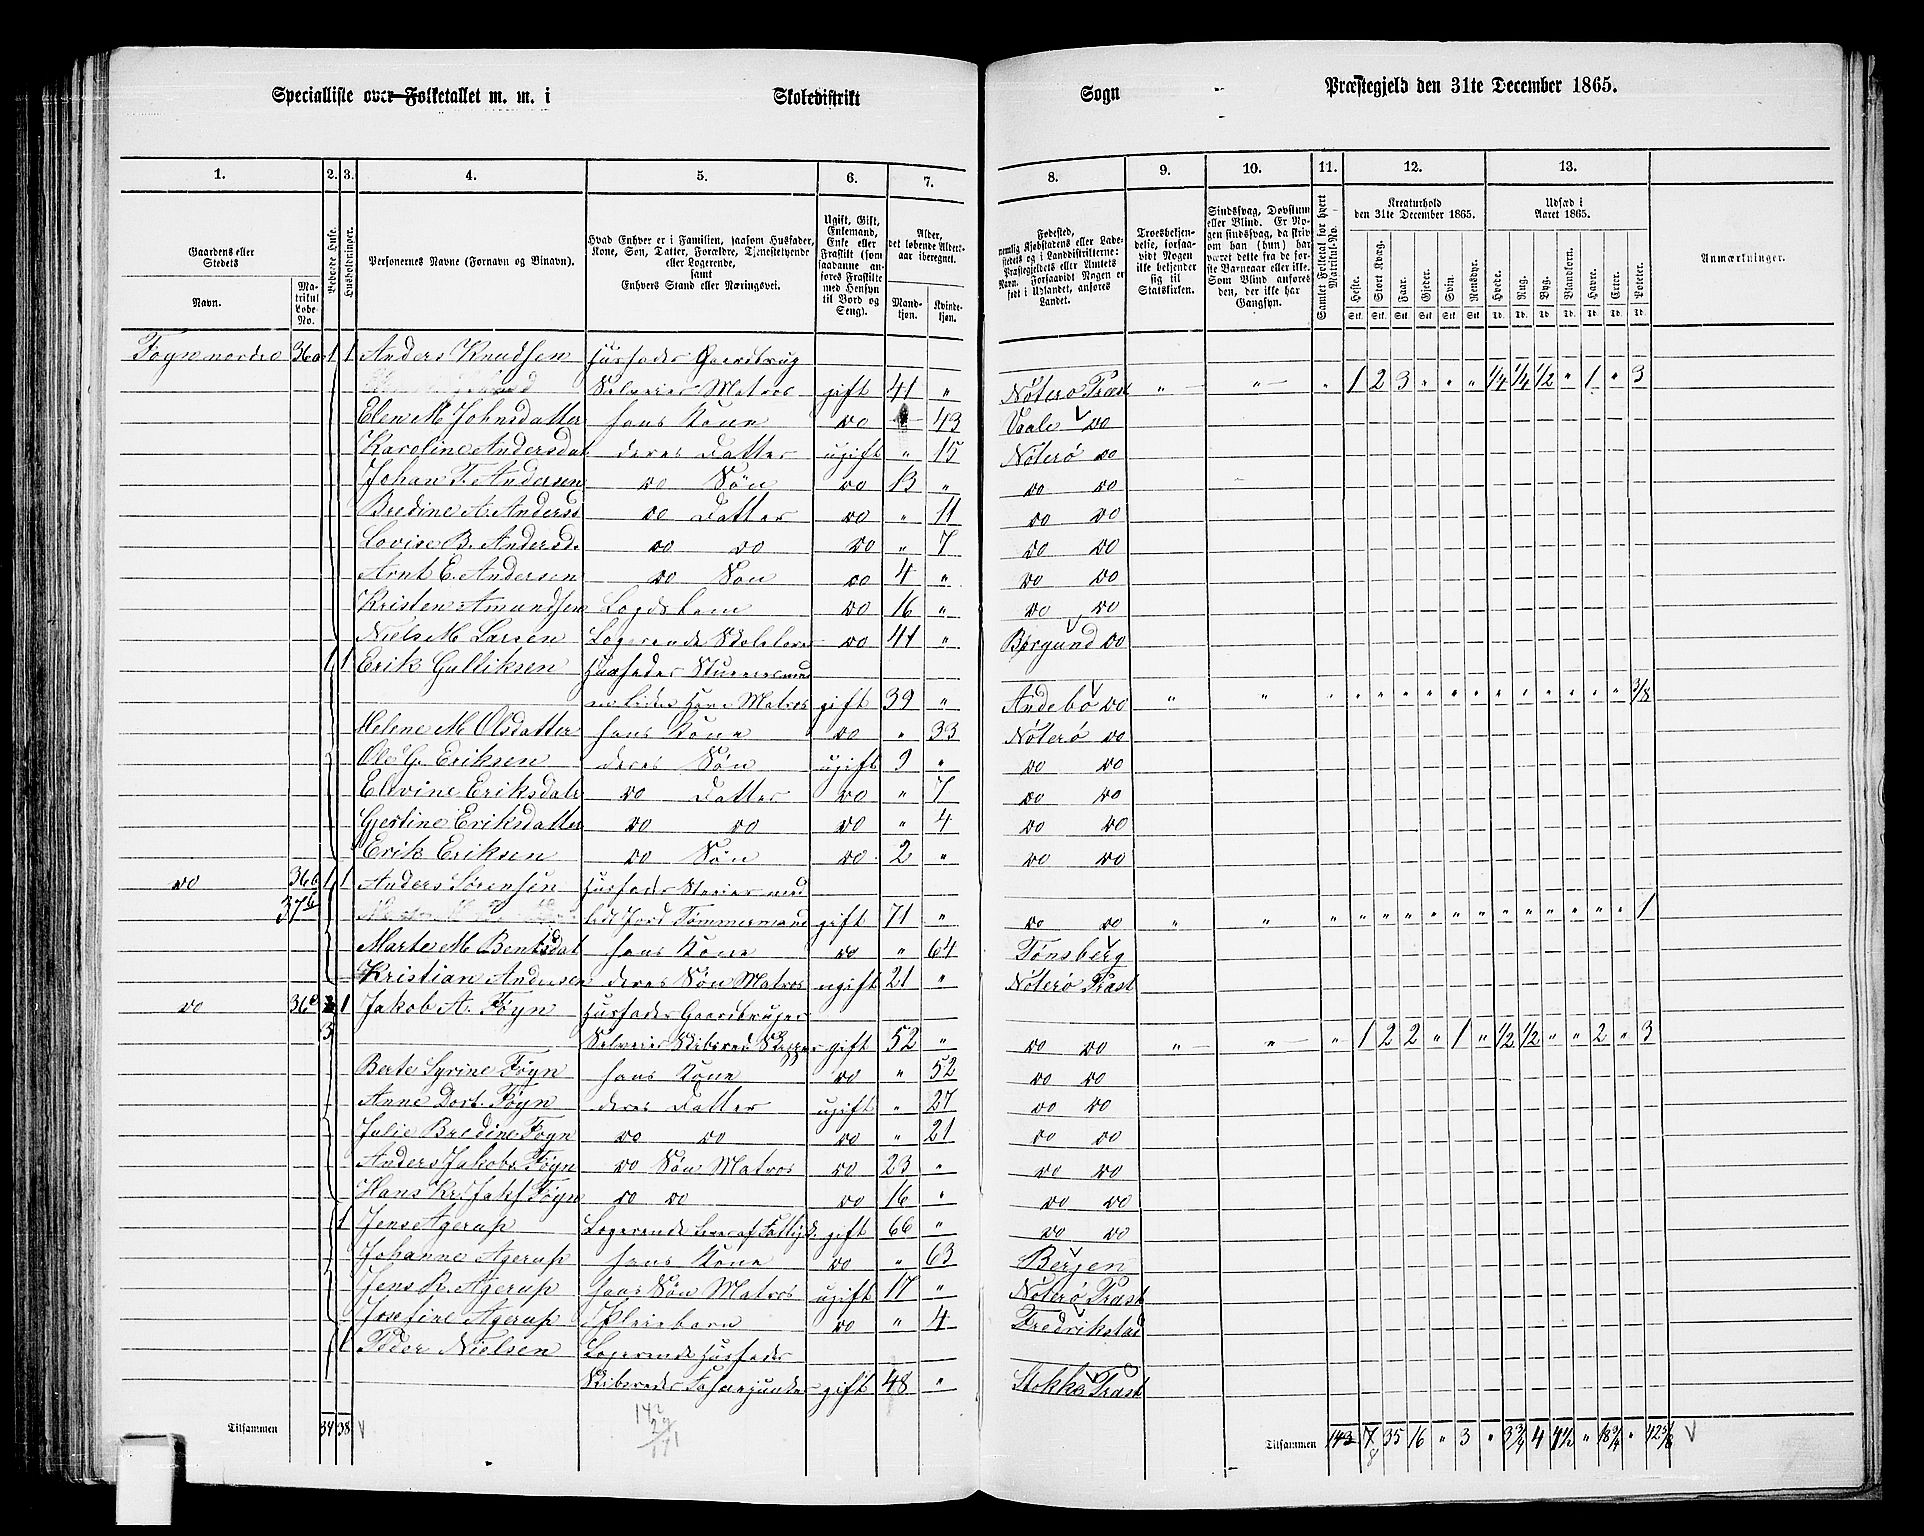 Specialliste over Folketallet m. m. i Skoledistrikt Sogn Præstegjeld den 31te December 1865.
1. 2. 3. 4. 5. 6. 7. 8. 9. 10. 11. 12. 13.
Gaardens eller Stedets
Navn. Matrikul Løbe-No.
Beboede Huse.
Husholdninger.
Personernes Navne (Fornavn og Binavn).
Hvad Enhver er i Familien, saasom Husfader, Kone, Søn, Datter, Forældre, Tjenestetyende eller Logerende, samt Enhvers Stand eller Næringsvei.
Ugift, Gift, Enkemand, Enke eller Fraskilt (som saadanne anføres Fraskilte med Hensyn til Bord og Seng).
Alder, det løbende Alders-aar iberegnet.
Mandkjøn. Kvindekjøn.
Fødested,
Troesbekjendelse, forsaavidt Nogen ikke bekjender sig til Statskirken.
Samlet Folketal for hvert Matrikul-No.
Kreaturhold den 31te December 1865.
Heste. Stort Kvæg. Faar. Gjeder. Svin. Rensdyr.
Udsæd i Aaret 1865.
Hvede. Rug. Byg. Blandkorn. Havre. Erter. Poteter.
Anmærkninger.
Føyn nordre 36a 1 1 Anders Knudsen Husfader Gaardbrug
Selveier Matros gift 41 " Nöterö Præst " " " 1 2 3 " " " 1/4 1/4 1/2 " 1 " 3
Elen M Johnsdatter hans Kone do 43 Vaale do
Karoline Andersdat deres Datter ugift " 15 Nöterö do
Johan F. Andersen do Søn do 13 " do do
Bredine A. Andersd do Datter do " 11 do do
Lovise B. Andersd. do do do " 7 do do
Arnt E. Andersen do Søn do 4 " do do
Kristen Amundsen do 16 " do do
Niels M Larsen Logerende Skolelærer do 41 " Borgund do
1 1 Erik Gulliksen Husfader
Matros gift 39 " Andebo do " " " " " " " " " " " " " " " 3/8
Helene M Olsdatter hans Kone do " 33 Nöterö do
Ole G. Eriksen deres Søn ugift 9 " do do
Elevine Eriksdatr do Datter do " 7 do do
Gjestine Eriksdatter do do do " 4 do do
Erik Eriksen do Søn do 2 " do do
do 36b 1 1 Anders Sørensen Husfader med
37b Jord Tømmermand gift 71 " do do " " " " " " " " " " " " " " " 1
Marte M Bentsdat hans Kone do " 64 Tønsberg
Kristian Andersen deres Søn Matros ugift 21 " Nöterö Præst
do 36c 1 Jakob A. Føyn Husfader Gaardbruger
3 Selveier Skibsred Skipper gift 52 " do do " " " 1 2 2 " 1 " 1/2 1/2 " " 2 " 3
Berte Syrine Føyn hans Kone do " 52 do do
Anne Dort. Føyn deres Datter ugift " 27 do do
Julie Bredine Føyn do do do " 21 do do
Anders Jakobs. Føyn do Søn Matros do 23 " do do
Hans Kr. Jakf Føyn do do do 16 " do do
1 Jens Agerup Logerende Lever af Fattigk. gift 66 " do do
Johanne Agerup hans Kone do " 63 Bergen
Jens R. Agerup hans Søn Matros ugift 17 " Nöterö Præst
Josefine Agerup Pleiebarn do " 4 Fredrikstad
1 Peder Nielsen Logerende Husfader
gift 48 " Stokke Præst
Tilsammen 34 38 142 29 171
Tilsammen 143 7 8 35 16 " 3 " 3 3/4 4 " " 42 5/8